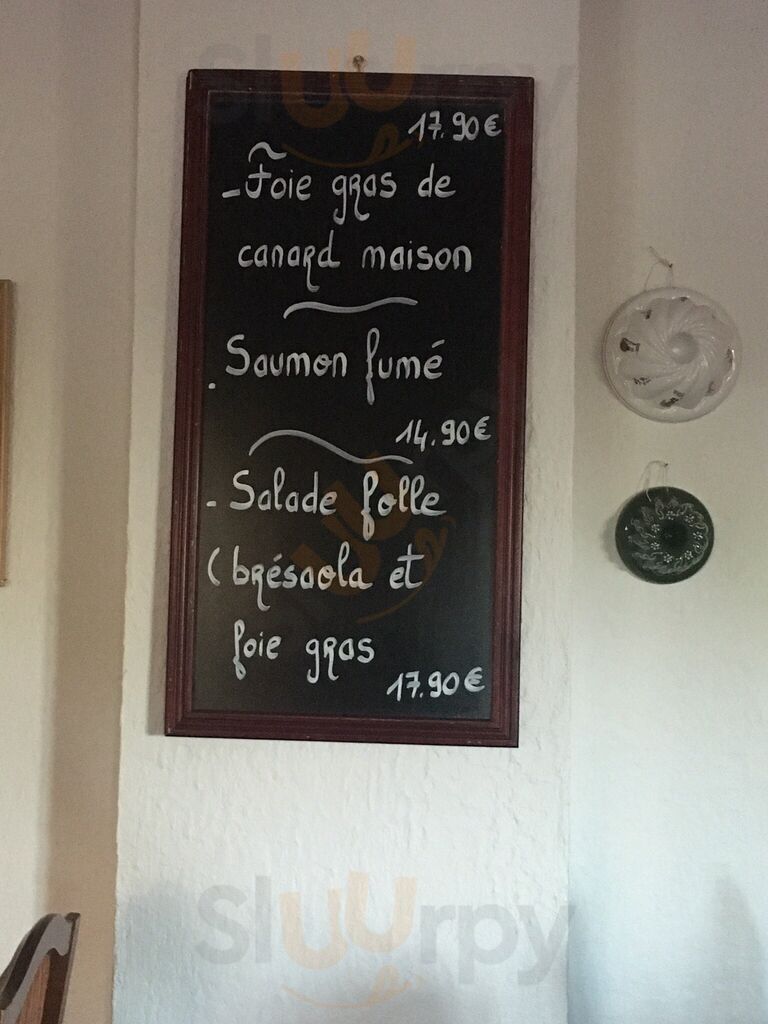 SlUUrpy
17.90€
- Foie gras de
canard maison
. Saumon fumé
14.90€
- Salade folle
( brésaola et
foie gras
17.90€
SlUUrpy